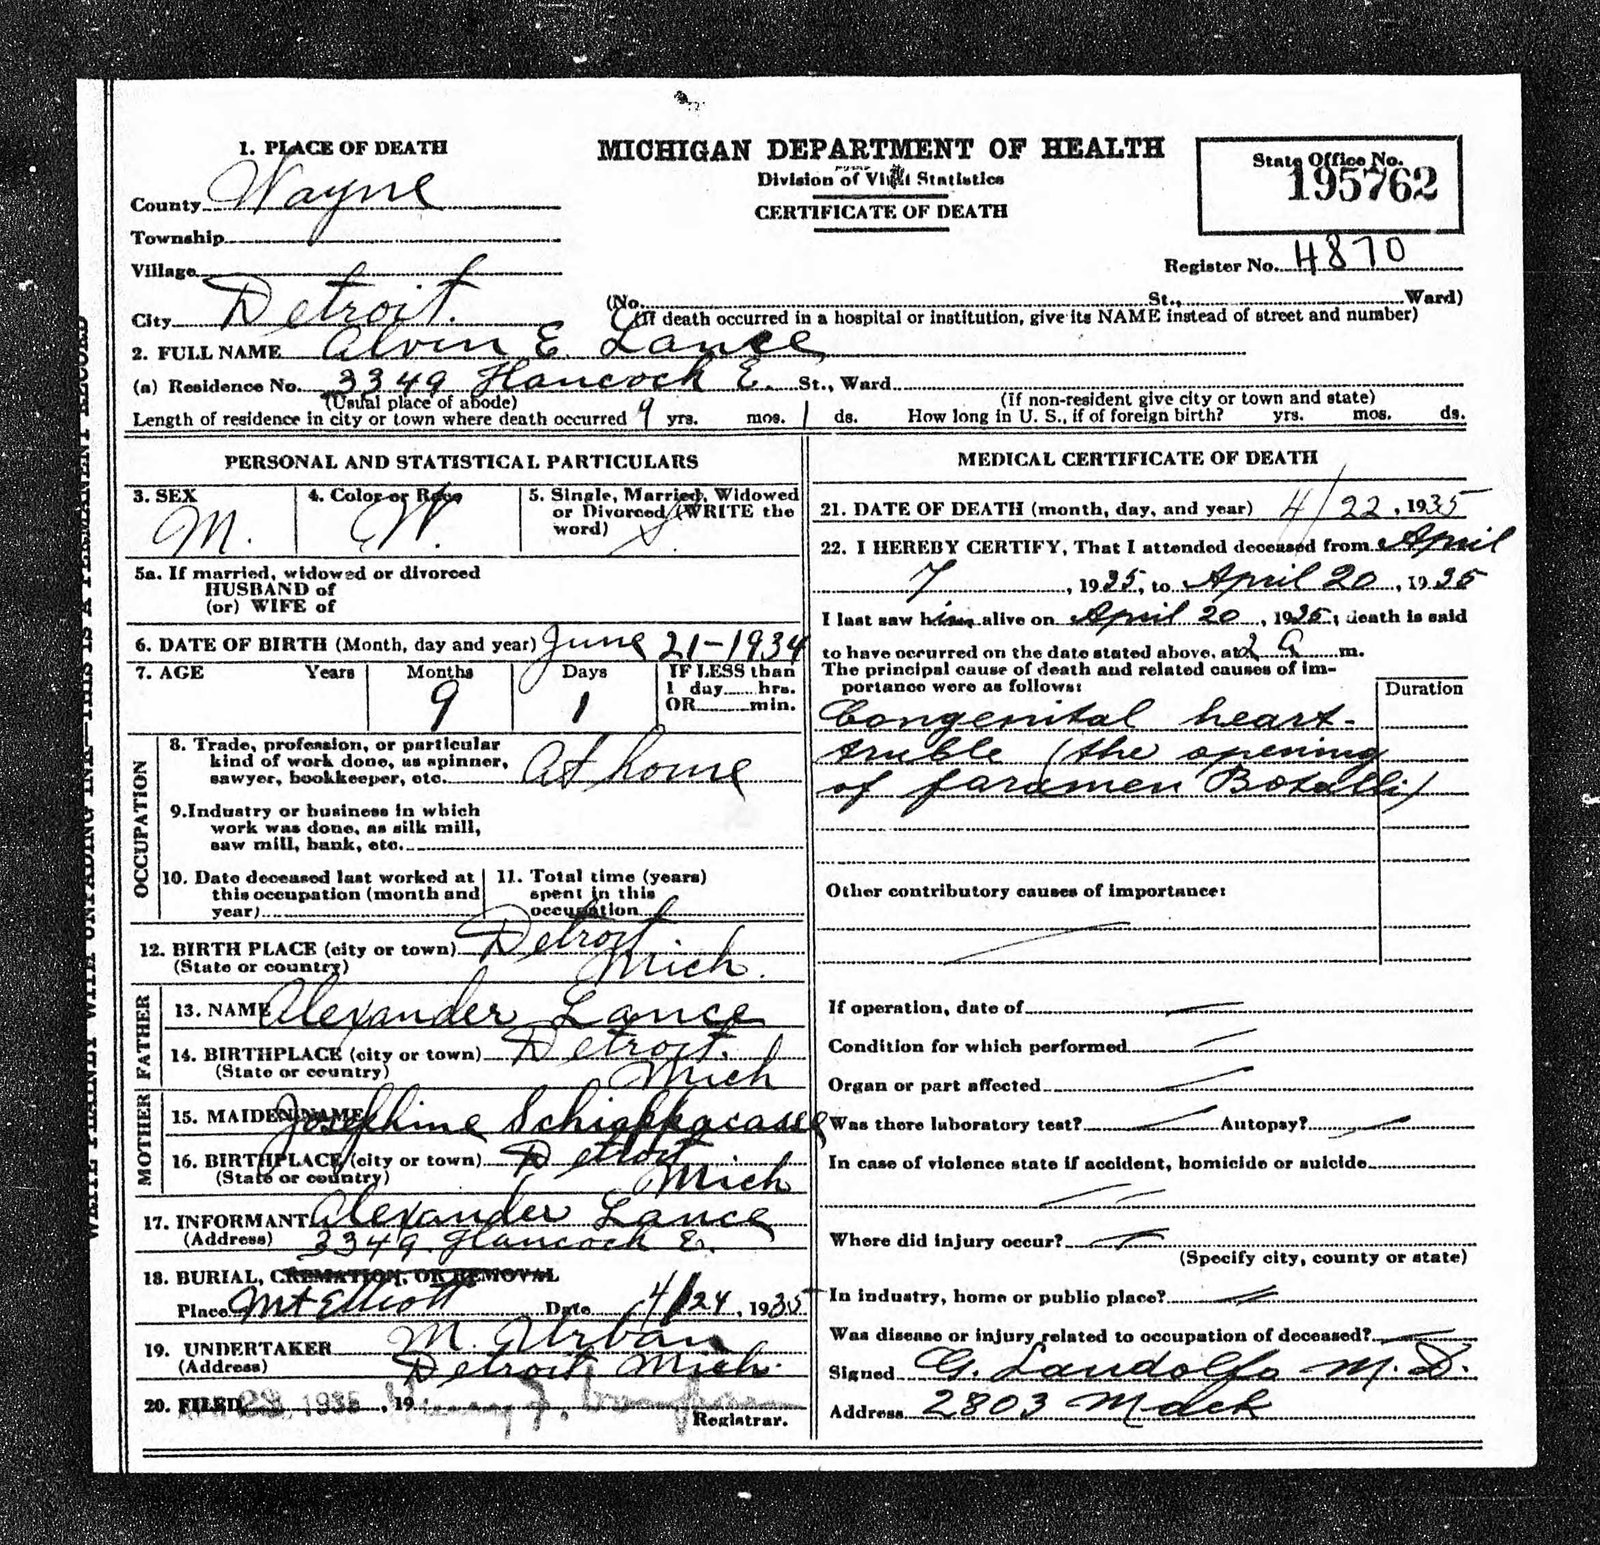 1. PLACE OF DEATH
County Wayne
Township
Village
City Detroit.
MICHIGAN DEPARTMENT OF HEALTH
Division of Vital Statistics
CERTIFICATE OF DEATH
State Office No.
195762
Register No. 4870
(No. St., Ward)
(If death occurred in a hospital or institution, give its NAME instead of street and number)
2. FULL NAME Alvin E. Lance
(a) Residence No. 3349 Hancock E. St., Ward
(Usual place of abode) (If non-resident give city or town and state)
Length of residence in city or town where death occurred yrs. 9 mos. 1 ds. How long in U. S., if of foreign birth? yrs. mos. ds.
PERSONAL AND STATISTICAL PARTICULARS
3. SEX
M.
4. Color or Race
W.
5. Single, Married, Widowed
or Divorced (WRITE the
word) S.
5a. If married, widowed or divorced
HUSBAND of
(or) WIFE of
6. DATE OF BIRTH (Month, day and year) June 21-1934
7. AGE Years Months Days IF LESS than
1 day hrs.
OR min.
9 1
OCCUPATION
8. Trade, profession, or particular
kind of work done, as spinner,
sawyer, bookkeeper, etc. At home
9. Industry or business in which
work was done, as silk mill,
saw mill, bank, etc.
10. Date deceased last worked at
this occupation (month and
year)
11. Total time (years)
spent in this
occupation
12. BIRTH PLACE (city or town) Detroit
(State or country) Mich.
FATHER
13. NAME Alexander Lance
14. BIRTHPLACE (city or town) Detroit.
(State or country) Mich
MOTHER
15. MAIDEN NAME Josephine Schiappacasse
16. BIRTHPLACE (city or town) Detroit
(State or country) Mich
17. INFORMANT Alexander Lance
(Address) 3349 Hancock E.
18. BURIAL, CREMATION, OR REMOVAL
Place Mt Elliott Date 4/24, 1935
19. UNDERTAKER M. Urban
(Address) Detroit Mich.
20. FILED 1935, 19
Registrar.
MEDICAL CERTIFICATE OF DEATH
21. DATE OF DEATH (month, day, and year) 4/22, 1935
22. I HEREBY CERTIFY, That I attended deceased from April
7, 1935, to April 20, 1935
I last saw him alive on April 20, 1935; death is said
to have occurred on the date stated above, at 2 A m.
The principal cause of death and related causes of im-
portance were as follows:
Duration
Congenital heart-
truble (the opening
of foramen Botalli)
Other contributory causes of importance:
If operation, date of
Condition for which performed
Organ or part affected
Was there laboratory test? Autopsy?
In case of violence state if accident, homicide or suicide
Where did injury occur?
(Specify city, county or state)
In industry, home or public place?
Was disease or injury related to occupation of deceased?
Signed G. Landolfo M.D.
Address 2803 Mack
WRITE PLAINLY WITH UNFADING INK—THIS IS A PERMANENT RECORD